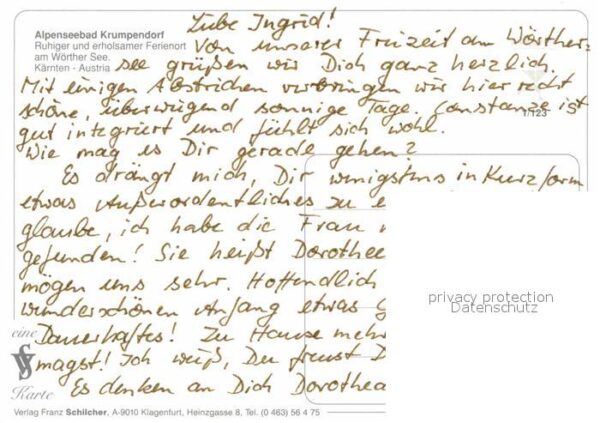 Alpenseebad Krumpendorf
Ruhiger und erholsamer Ferienort
am Wörther See.
Kärnten · Austria
Liebe Ingrid!
Von unserer Freizeit am Wörther-
see grüßen wir Dich ganz herzlich.
Mit einigen Abstrichen verbringen wir hier recht
schöne, überwiegend sonnige Tage. Constanze ist
1/123
gut integriert und fühlt sich wohl.
Wie mag es Dir gerade gehen?
Es drängt mich, Dir wenigstens in Kurzform
etwas Außerordentliches zu e
glaube, ich habe die Frau
gefunden! Sie heißt Dorothee
mögen uns sehr. Hoffendlich
wunderschönen Anfang etwas
Dauerhaftes! Zu Hause mehr
magst! Ich weiß, Du freust D
Es denken an Dich Dorothea
privacy protection
Datenschutz
eine
Karte
Verlag Franz Schilcher. A-9010 Klagenfurt, Heinzgasse 8, Tel. (0 463) 56 4 75